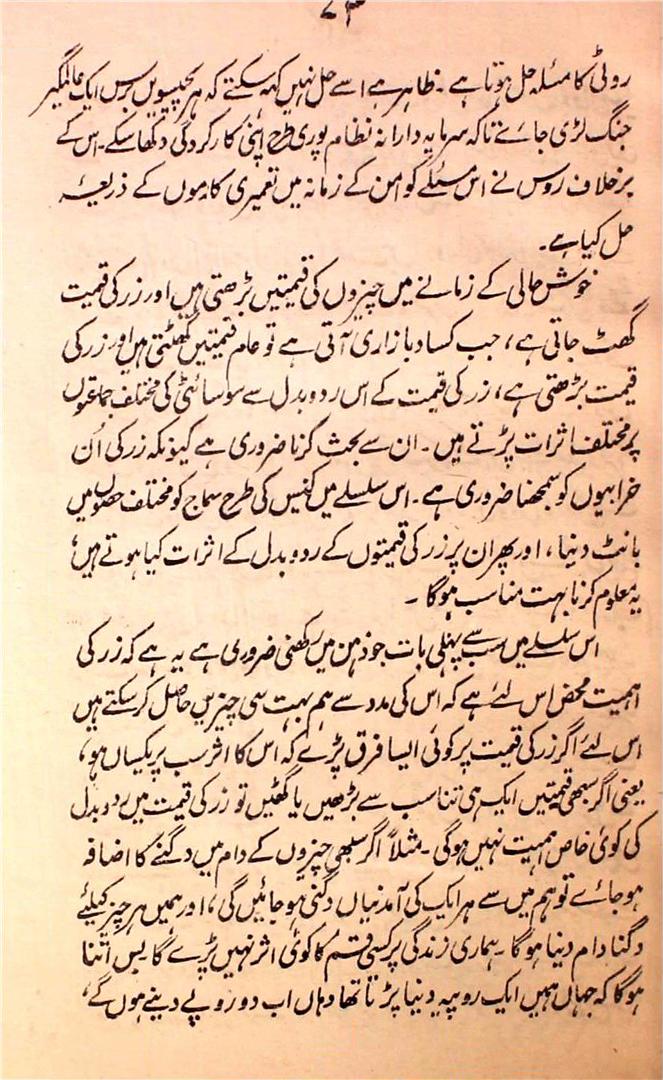 ۷۳
روٹی کا مسئلہ حل ہوتا ہے۔ ظاہر ہے اسے حل نہیں کہہ سکتے کہ ہر پچیسویں برس ایک عالمگیر
جنگ لڑی جائے تاکہ سرمایہ دارانہ نظام پوری طرح اپنی کارکردگی دکھا سکے۔ اس کے
برخلاف روس نے اس مسئلے کو امن کے زمانہ میں تعمیری کاموں کے ذریعہ
حل کیا ہے۔
خوش حالی کے زمانے میں چیزوں کی قیمتیں بڑھتی ہیں اور زر کی قیمت
گھٹ جاتی ہے، جب کساد بازاری آتی ہے تو عام قیمتیں گھٹتی ہیں اور زر کی
قیمت بڑھتی ہے، زر کی قیمت کے اس ردوبدل سے سوسائٹی کی مختلف جماعتوں
پر مختلف اثرات پڑتے ہیں۔ ان سے بحث کرنا ضروری ہے کیونکہ زر کی اُن
خرابیوں کو سمجھنا ضروری ہے۔ اس سلسلے میں کینس کی طرح سماج کو مختلف حصّوں میں
بانٹ دینا، اور پھر ان پر زر کی قیمتوں کے ردوبدل کے اثرات کیا ہوتے ہیں،
یہ معلوم کرنا بہت مناسب ہوگا۔
اس سلسلے میں سب سے پہلی بات جو ذہن میں رکھنی ضروری ہے یہ ہے کہ زر کی
اہمیت محض اس لئے ہے کہ اس کی مدد سے ہم بہت سی چیزیں حاصل کر سکتے ہیں
اس لئے اگر زر کی قیمت پر کوئی ایسا فرق پڑے کہ اس کا اثر سب پر یکساں ہو،
یعنی اگر سبھی قیمتیں ایک ہی تناسب سے بڑھیں یا گھٹیں تو زر کی قیمت میں ردوبدل
کی کوئی خاص اہمیت نہیں ہوگی۔ مثلاً اگر سبھی چیزوں کے دام میں دگنے کا اضافہ
ہو جائے تو ہم میں سے ہر ایک کی آمدنیاں دگنی ہو جائیں گی، اور ہمیں ہر چیز کیلئے
دگنا دام دینا ہوگا۔ ہماری زندگی پر کسی قسم کا کوئی اثر نہیں پڑے گا بس اتنا
ہوگا کہ جہاں ہمیں ایک روپیہ دینا پڑتا تھا وہاں اب دو روپے دینے ہوں گے،